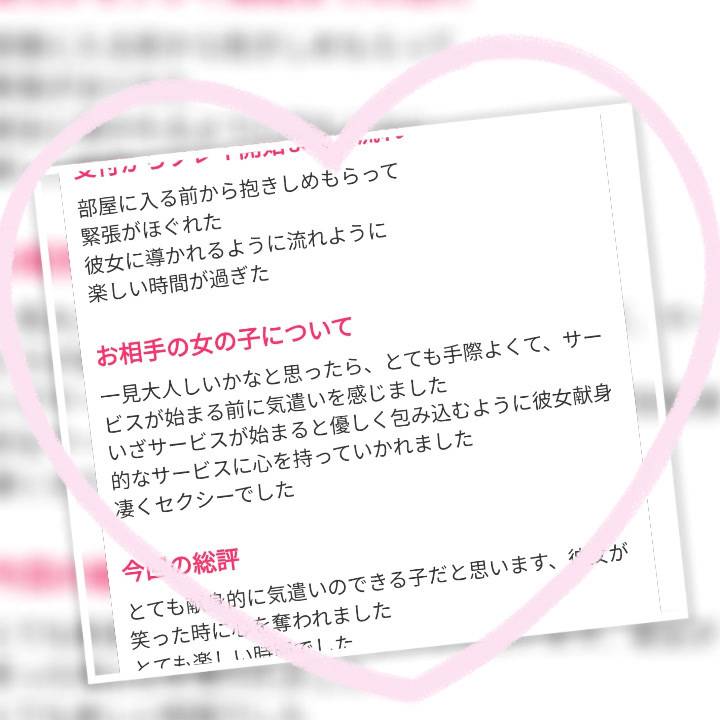 受付からプレイ開始までの流れ
部屋に入る前から抱きしめもらって
緊張がほぐれた
彼女に導かれるように流れように
楽しい時間が過ぎた
お相手の女の子について
一見大人しいかなと思ったら、とても手際よくて、サー
ビスが始まる前に気遣いを感じました
いざサービスが始まると優しく包み込むように彼女献身
的なサービスに心を持っていかれました
凄くセクシーでした
今回の総評
とても献身的に気遣いのできる子だと思います、彼女が
笑った時に心を奪われました
とても楽しい時間でした